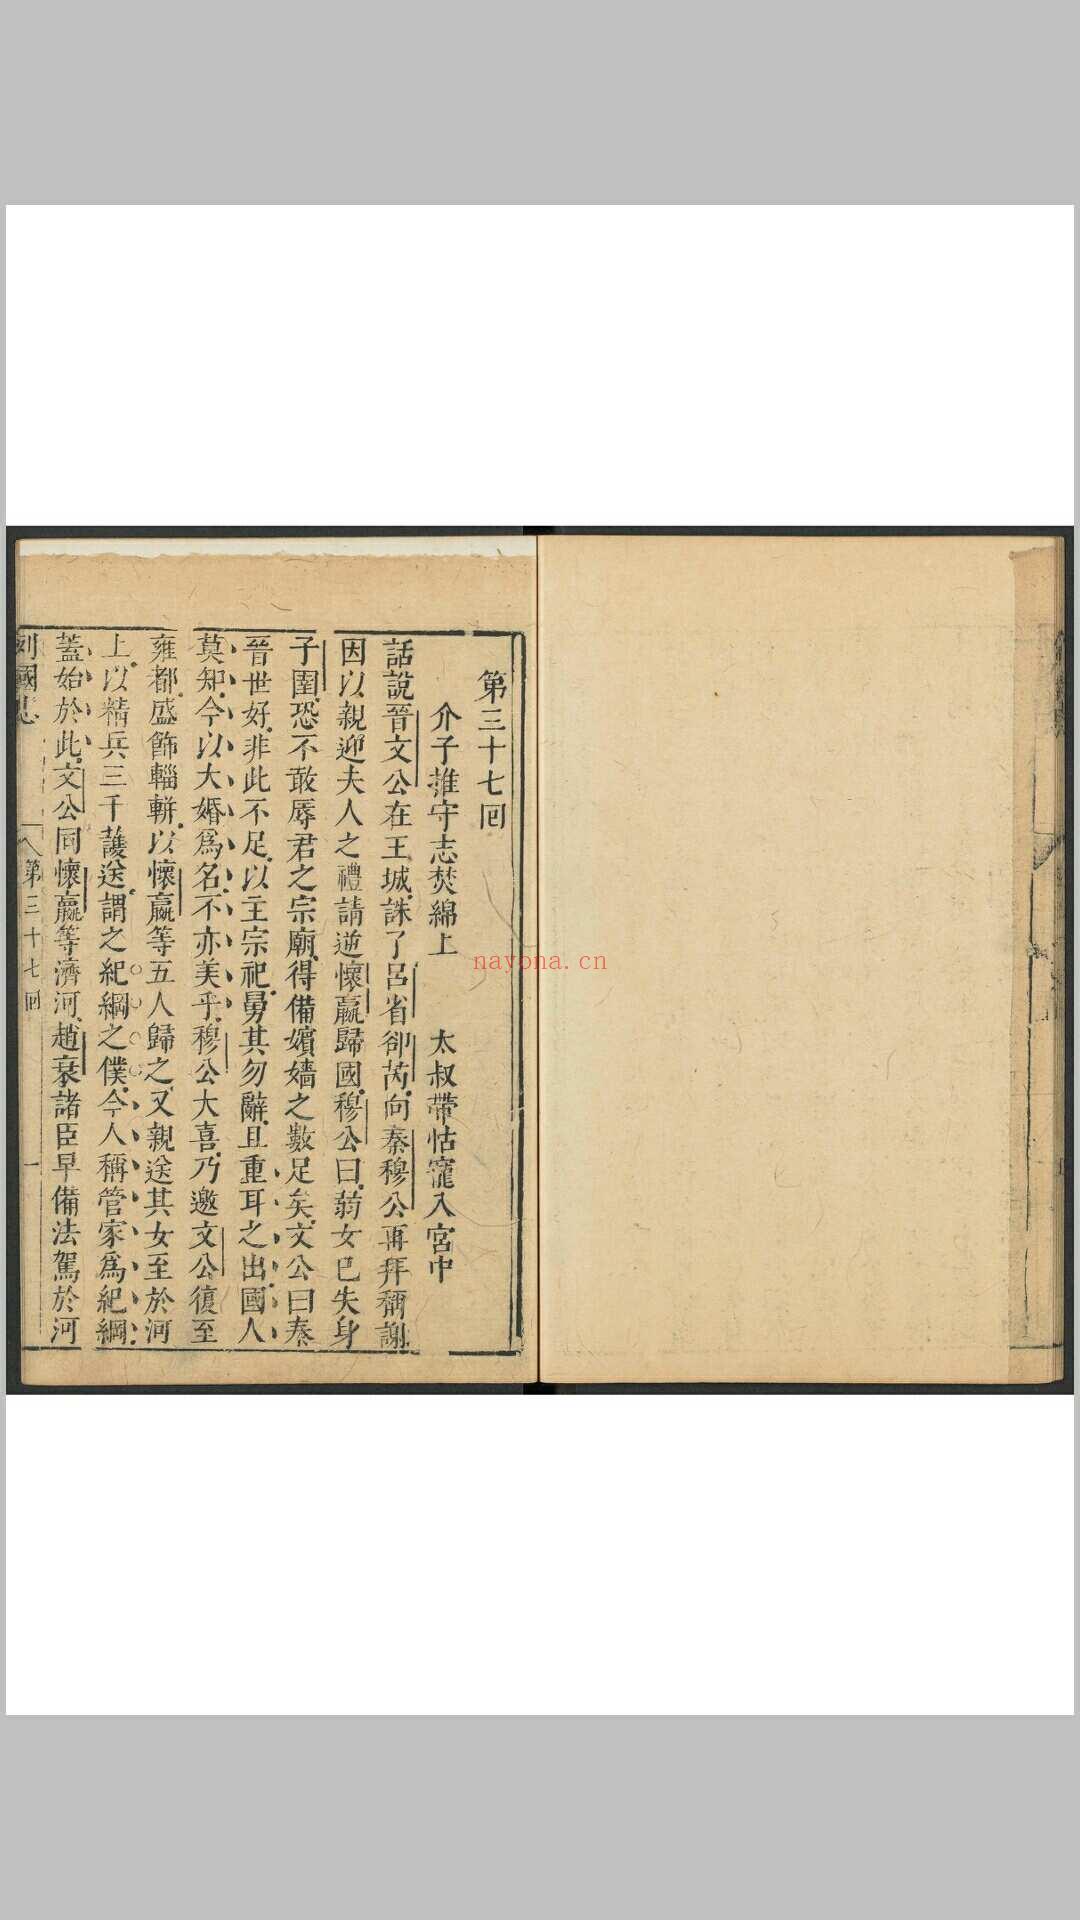 第三十七回
介子推守志焚綿上　太叔帶怙寵入宮中
話說晉文公在王城誅了呂省郤芮向秦穆公再拜稱謝
因以親迎夫人之禮請逆懷嬴歸國穆公曰弱女已失身
子圉恐不敢辱君之宗廟得備嬪嬙之數足矣文公曰秦
晉世好非此不足以主宗祀舅其勿辭且重耳之出國人
莫知今以大婚爲名不亦美乎穆公大喜乃邀文公復至
雍都盛飾輜軿以懷嬴等五人歸之又親送其女至於河
上以精兵三千護送謂之紀綱之僕今人稱管家爲紀綱
蓋始於此文公同懷嬴等濟河趙衰諸臣早備法駕於河
列國志
第三十七回
一
nayona.cn